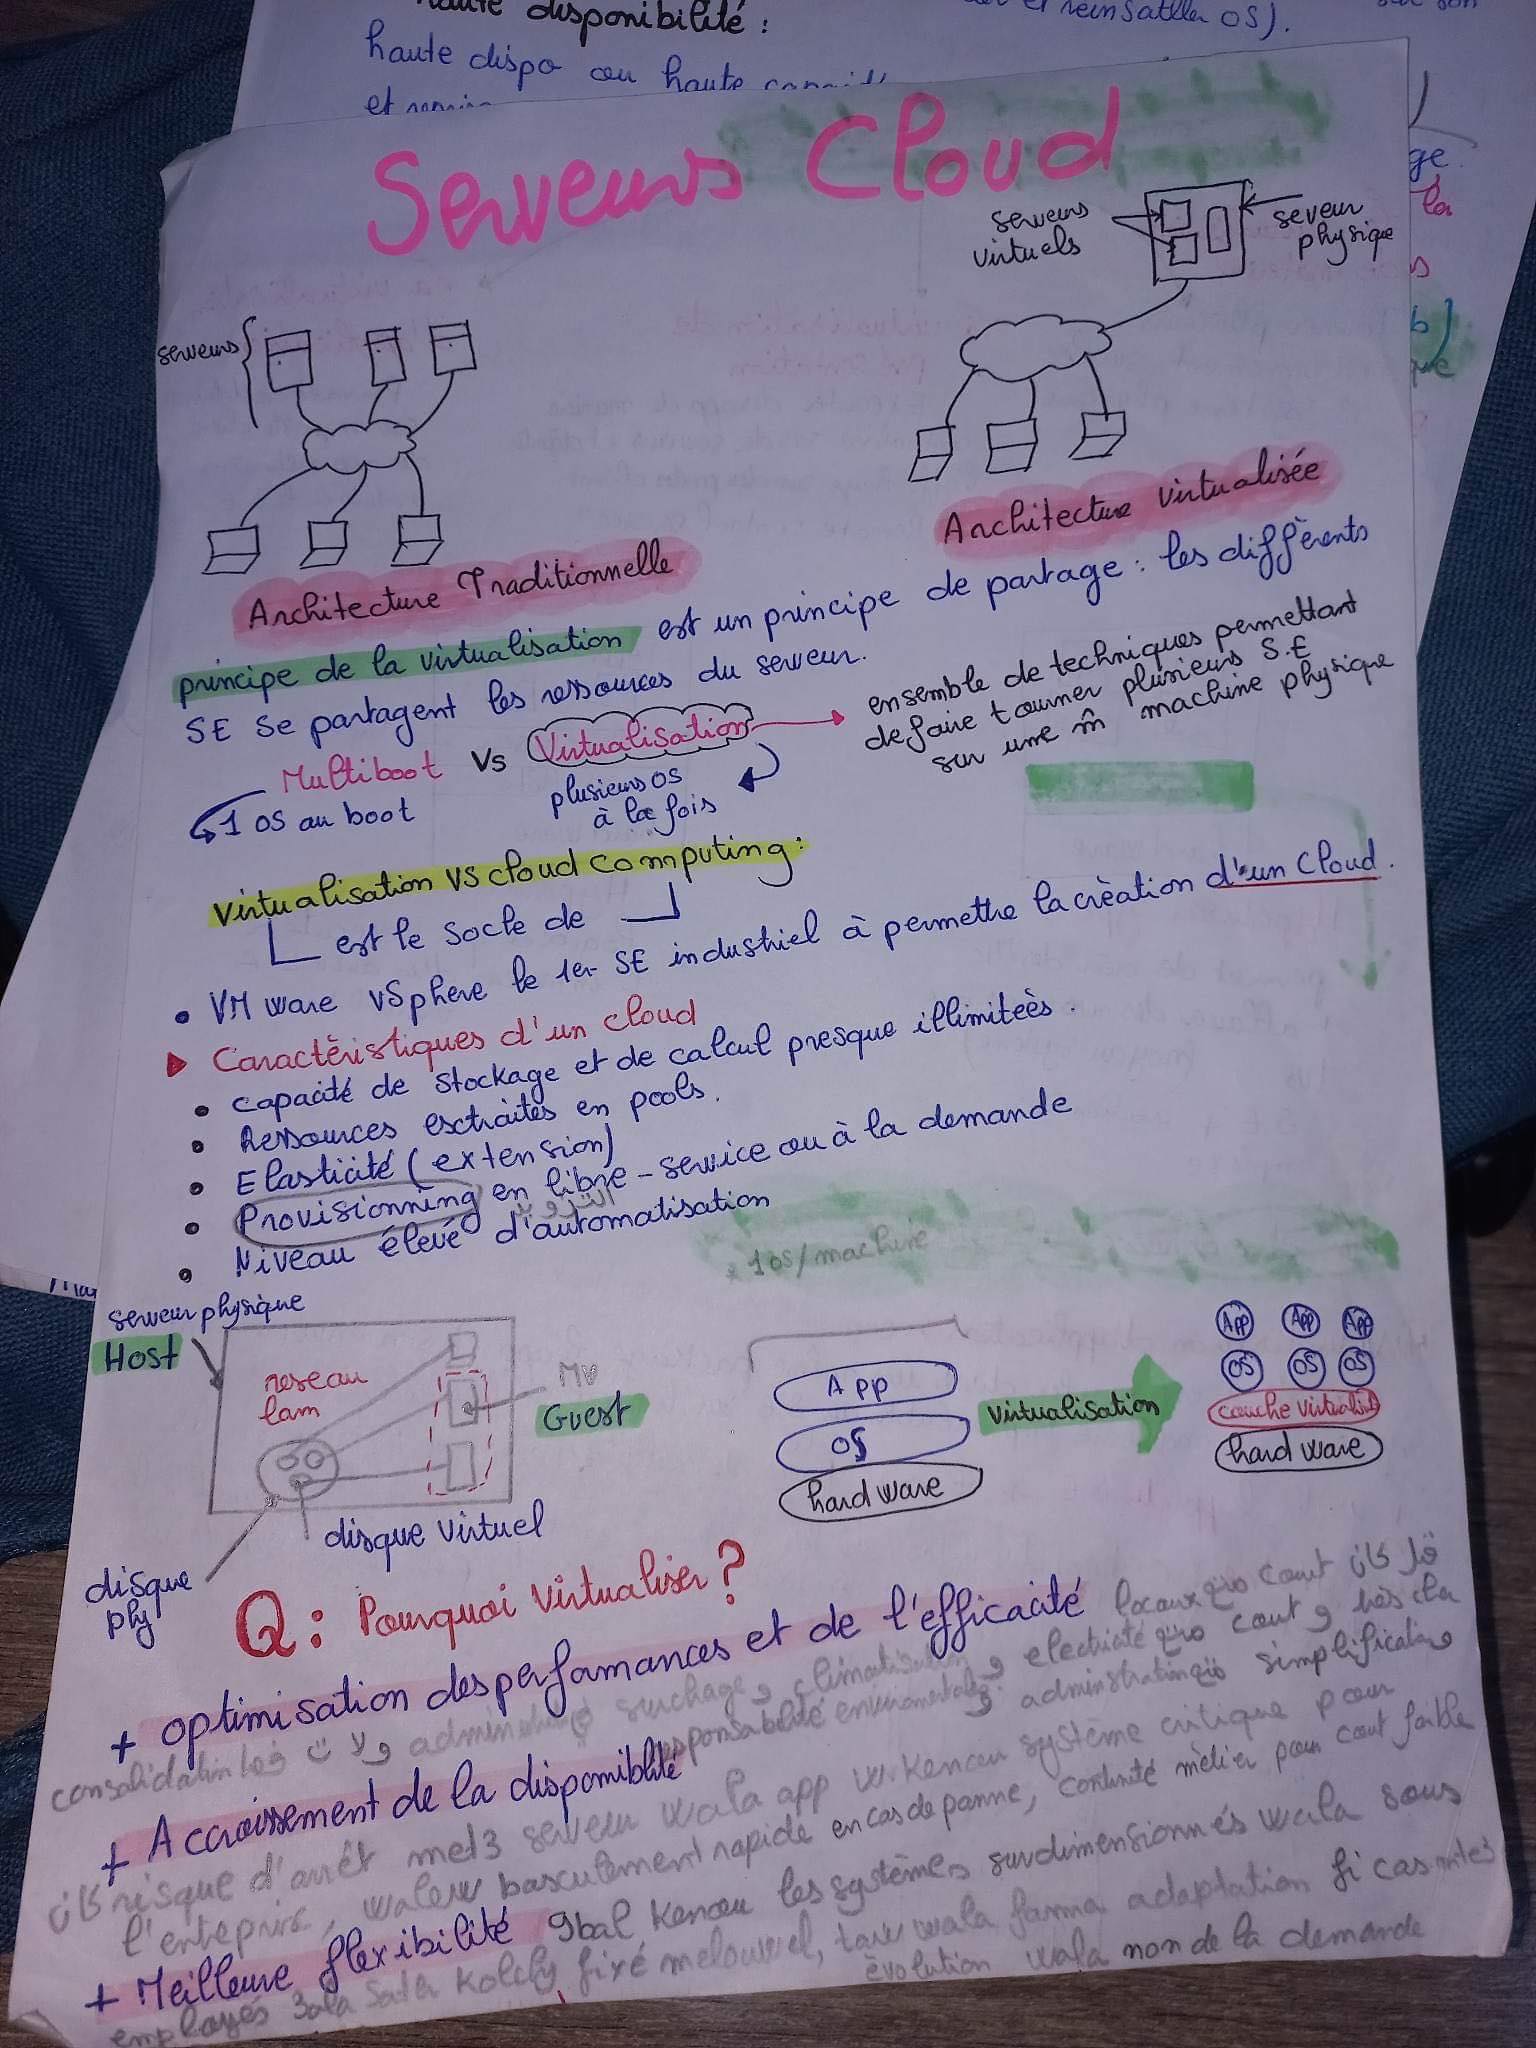 haute disponibilité :
et reinsatller OS).
haute dispo ou haute
ge.
la
Serveurs Cloud
serveurs
virtuels
seveur
physique
serveurs
Architecture Traditionnelle
Architecture virtualisée
principe de la virtualisation est un principe de partage : les différents
SE se partagent les ressources du serveur.
Multiboot Vs Virtualisation
ensemble de techniques permettant
de faire tourner plusieurs S.E
sur une m̂ machine physique
1 OS au boot
plusieurs OS
à la fois
Virtualisation VS cloud computing :
est le socle de
• VM ware vSphere le 1er SE industriel à permettre la création d'un Cloud.
Caractèristiques d'un cloud
• capacité de stockage et de calcul presque illimiteès.
• Ressources esctraites en pools.
• Elasticité (extension)
• Provisionning en libre-service ou à la demande
• Niveau élevé d'automatisation
* 1 OS/machine
serveur physique
Host
reseau
lam
MV
Guest
disque virtuel
disque
phy
App
OS
hard ware
Virtualisation
App App App
OS OS OS
couche virtualist
hard ware
Q : Pourquoi virtualiser ?
+ optimisation des performances et de l'efficacité
locaux cout قبل كان
climatisation و electricité cout و très cher
consolidation surchage و
administration simplification
+ Accroissement de la disponiblité
كان risque d'arrêt met3 serveur wala app w kenou système critique pour
l'enteprise, walew basculement rapide en cas de panne, continuité métier pour cout faible
+ Meilleure flexibilité 9bal kenou les systèmes surdimensionnés wala sous
employés 3ala 5ater kolchy fixé melouwel, taw wala famma adaptation fi cas
évolution wala non de la demande